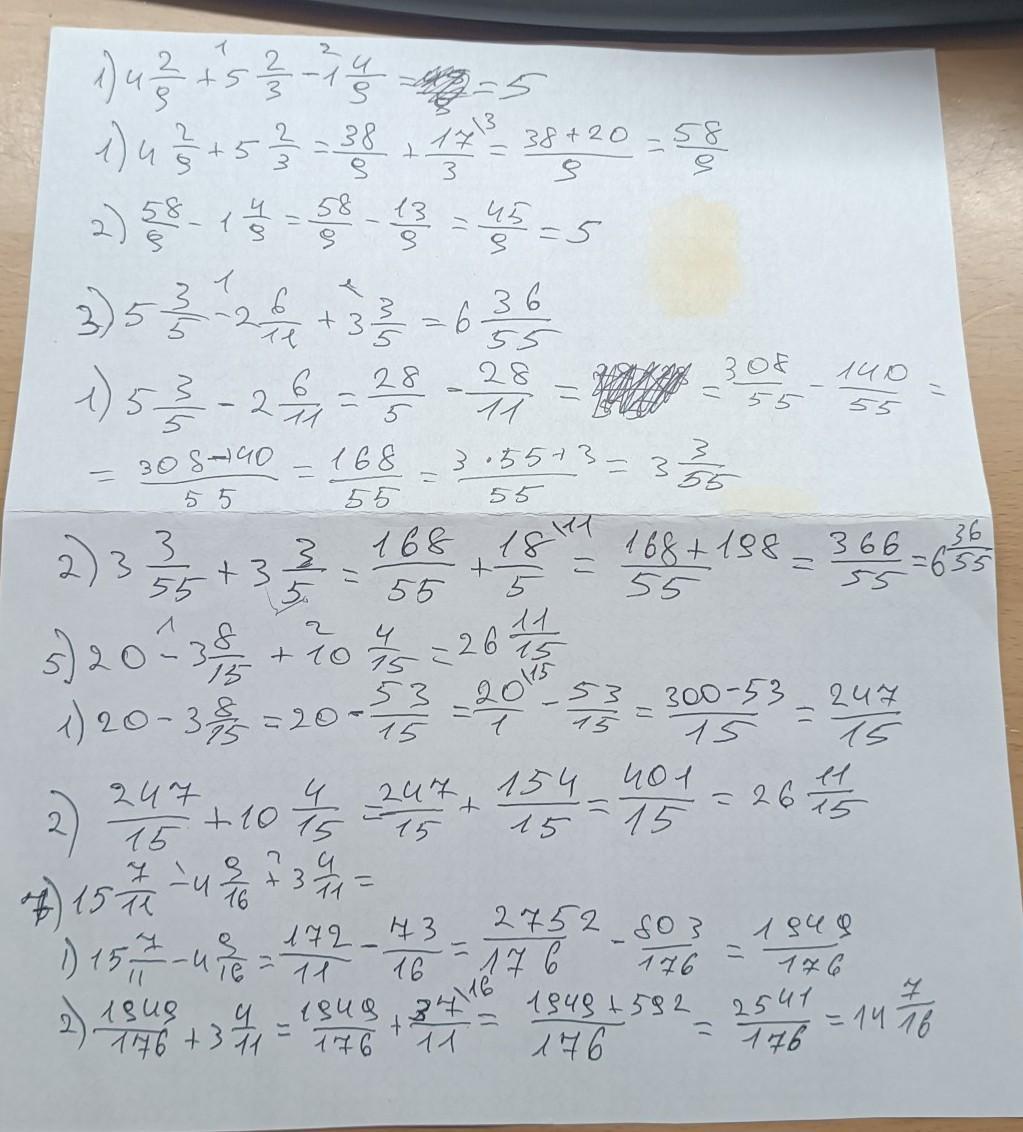 1) 4 2/9 + 5 2/3 - 1 4/9 = = 5
1) 4 2/9 + 5 2/3 = 38/9 + 17/3 \3 = 38+20/9 = 58/9
2) 58/9 - 1 4/9 = 58/9 - 13/9 = 45/9 = 5
3) 5 3/5 - 2 6/11 + 3 3/5 = 6 36/55
1) 5 3/5 - 2 6/11 = 28/5 - 28/11 = = 308/55 - 140/55 =
= 308-140/55 = 168/55 = 3·55+3/55 = 3 3/55
2) 3 3/55 + 3 3/5 = 168/55 + 18/5 \11 = 168+198/55 = 366/55 = 6 36/55
5) 20 - 3 8/15 + 10 4/15 = 26 11/15
1) 20 - 3 8/15 = 20 - 53/15 = 20/1 \15 - 53/15 = 300-53/15 = 247/15
2) 247/15 + 10 4/15 = 247/15 + 154/15 = 401/15 = 26 11/15
7) 15 7/11 - 4 9/16 + 3 4/11 =
1) 15 7/11 - 4 9/16 = 172/11 - 73/16 = 2752/176 - 803/176 = 1949/176
2) 1949/176 + 3 4/11 = 1949/176 + 37/11 \16 = 1949+592/176 = 2541/176 = 14 7/16